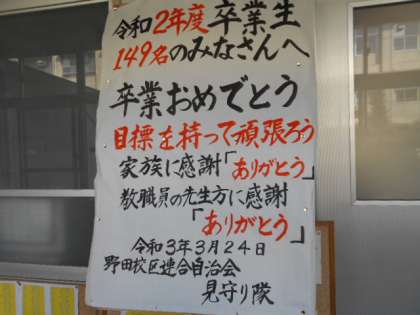 令和2年度卒業生
149名のみなさんへ
卒業おめでとう
目標を持って頑張ろう
家族に感謝「ありがとう」
教職員の先生方に感謝
「ありがとう」
令和3年3月24日
野田校区連合自治会
見守り隊